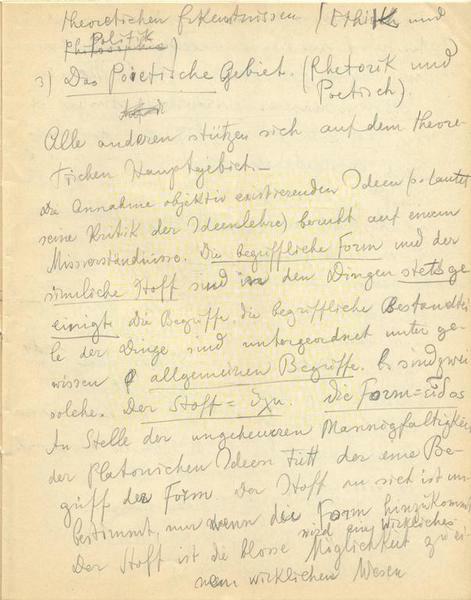 theoretischen Erkentnissen (Ethik und
Politik
Philosophie)
3) Das Poietische Gebiet. (Rhetorik und
Poetisch).
Alle anderen stützen sich auf dem theore-
tischen Hauptgebiet.—
Die Annahme objektiv existierenden Ideen (so lautet
seine Kritik der Ideenlehre) beruht auf einem
Missverständnisse. Die begriffliche Form und der
sinnliche Stoff sind in den Dingen stets ge
einigt. Die Begriffe, die begriffliche Bestandtei
le der Dinge sind untergeordnet unter ge-
wissen allgemeinen Begriffe. Es sind zwei
solche. Der Stoff = . Die Form =
An Stelle der ungeheuren Mannigfaltigkeit
der Platonischen Ideen tritt der eine Be-
griff der Form. Der Stoff an sich ist un-
bestimmt, nur wenn die Form hinzukommt
wird ein wirkliches
Der Stoff ist die blosse Möglichkeit zu ei-
nem wirklichen Wesen